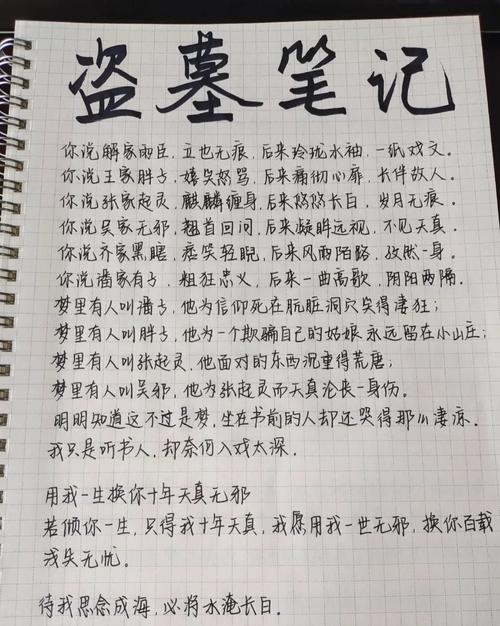 盗墓笔记
你说解家雨臣,立也无痕,后来玲珑水袖,一纸戏文。
你说王家胖子,嬉笑怒骂,后来痛彻心扉,长伴故人。
你说张家起灵,麒麟缠身,后来悠悠长白,岁月无痕。
你说吴家无邪,翘首回问,后来凝眸远视,不见天真。
你说齐家黑瞎,痞笑轻睨,后来风雨陌路,孜然一身。
你说潘家有子,粗狂忠义,后来一曲高歌,阴阳两隔。
梦里有人叫潘子,他为信仰死在肮脏洞穴笑得凄狂;
梦里有人叫胖子,他为一个欺骗自己的姑娘永远留在小山庄;
梦里有人叫张起灵,他面对的东西沉重得荒唐;
梦里有人叫吴邪,他为张起灵而天真沦丧一身伤。
明明知道这不过是梦,坐在书前的人却还哭得那么凄凉。
我只是听书人,却奈何入戏太深。
用我一生换你十年天真无邪
若倾你一生,只得我十年天真,我愿用我一世无邪,换你百载
戎失无忧。
待我思念成海,必将水淹长白。